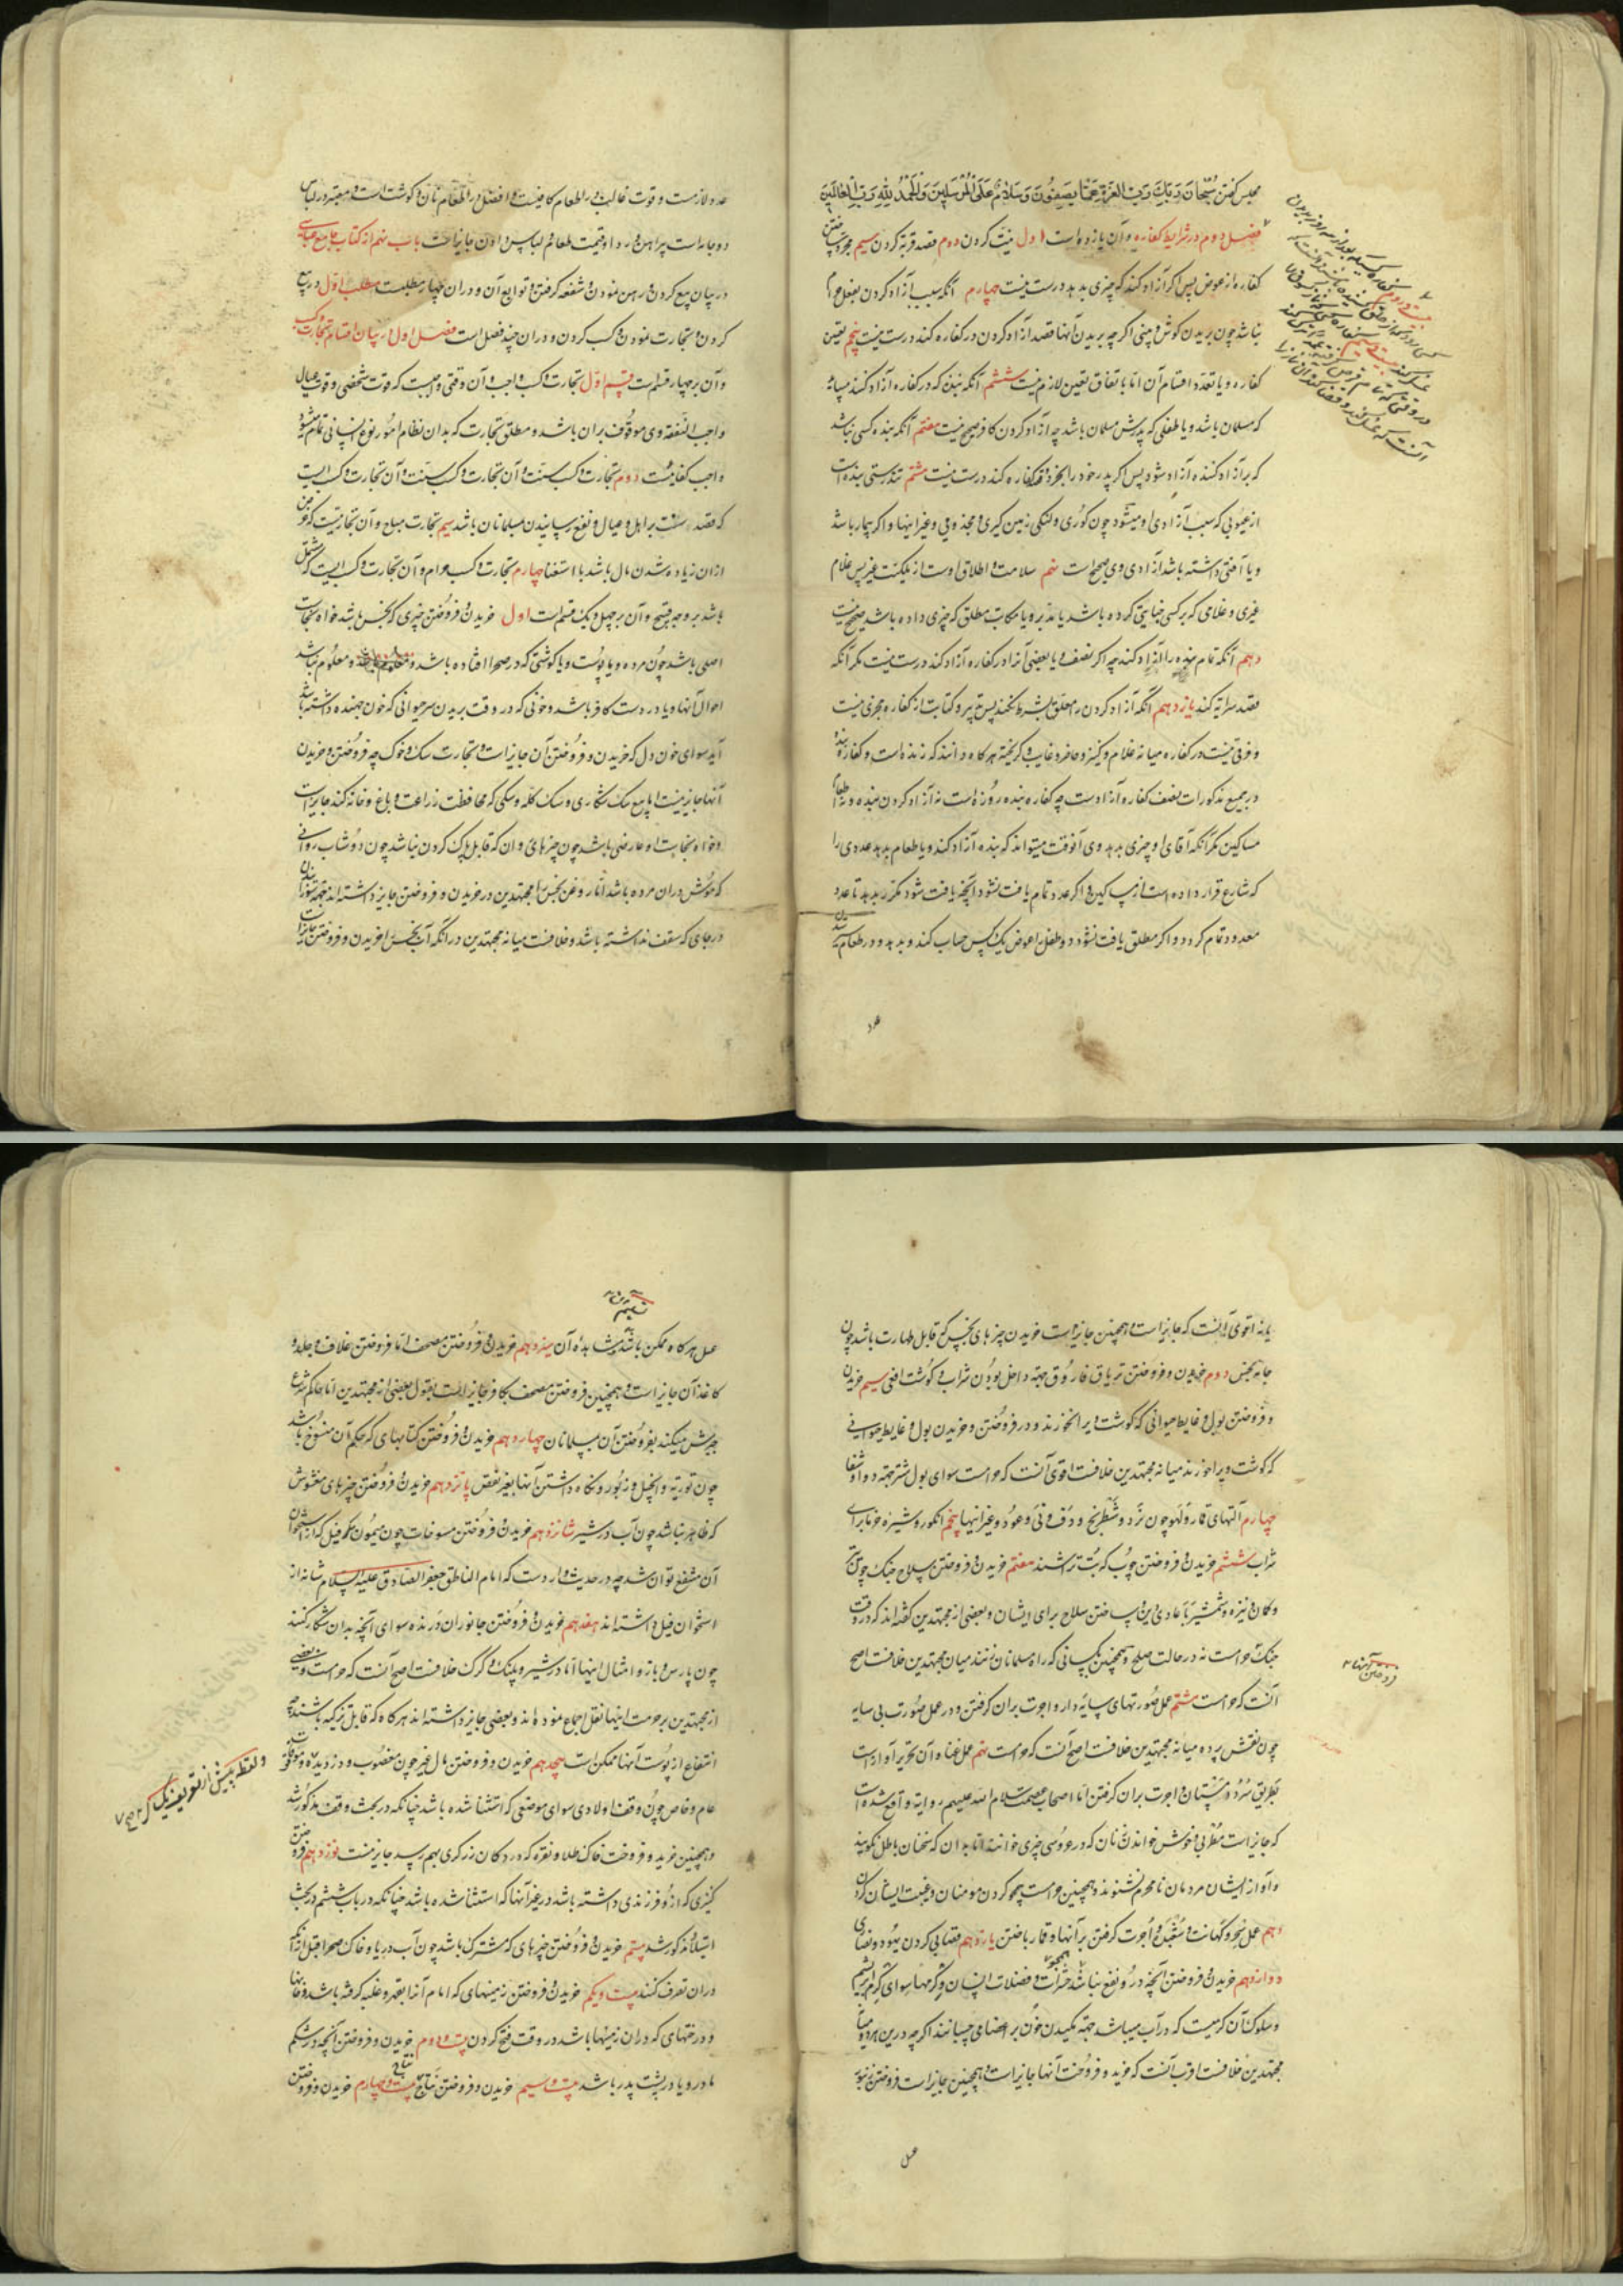 مجلس گفتن سُبْحَانَ رَبِّكَ رَبِّ الْعِزَّةِ عَمَّا يَصِفُونَ وَسَلَامٌ عَلَى الْمُرْسَلِينَ وَالْحَمْدُ لِلَّهِ رَبِّ الْعَالَمِينَ
فصل دوم در شرایط کفاره و آن یازده است اول نیت کردن دوم قصد قربة کردن سیم مجرد ساختن
کفاره از عوض پس اگر آزاد کند که چیزی بدهد درست نیست چهارم آنکه سبب آزاد کردن بفعل حرام
نباشد چون بریدن گوش و بینی اگر چه بریدن آنها قصد آزاد کردن در کفاره کند درست نیست پنجم تعین
کفاره و یا تعدد اقسام آن اما با تفاق تعین لازم نیست ششم آنکه بنده که در کفاره آزاد کنند میباید
که مسلمان باشد و یا طفلی که پدرش مسلمان باشد چه آزاد کردن کافر صحیح نیست هفتم آنکه بنده کسی نباشد
که بر آزاد کننده آزاد شود پس اگر پدر خود را بخرد و قصد کفاره کند درست نیست هشتم تندرستی بنده است
از عیوبی که سبب آزادی او میشود چون کوری و لنگی زمین گیری و مجذومی و غیر اینها و اگر بیمار باشد
و یا آفتی داشته باشد آزادی وی صحیح است نهم سلامت و اطلاق اوست از ملکیت غیر پس غلام
غیری و غلامی که بر کسی جنایتی کرده باشد یا مدبر و یا مکاتب مطلق که چیزی داده باشد صحیح نیست
دهم آنکه تمام بنده را آزاد کند چه اگر نصف و یا بعضی از او در کفاره آزاد کند درست نیست مگر آنکه
قصد سرایة کند یازدهم آنکه آزاد کردن را معلق بشرط نکند پس تدبیر و کتابت از کفاره مجزی نیست
و فرقی نیست در کفاره میانه غلام و کنیز و حاضر و غایب و گریخته هر گاه دانند که زنده است و کفاره بنده
در جمیع مذکورات نصف کفاره آزاد است چه کفاره بنده روزه است نه آزاد کردن بنده و نه اطعام
مساکین مگر آنکه آقای او چیزی بدهد وی آنوقت میتواند که بنده آزاد کند و یا طعام بدهد عددی را
که شارع قرار داده است از مساکین و اگر عدد تمام یافت نشود آنچه یافت شود مکرر بدهد تا عدد
معدود تمام گردد و اگر مطلق یافت نشود دو طفل را عوض یک کس حساب کند و بدهد و در طعام رسیدن
عدد لازمست و قوت غالب در اطعام کافیست و افضل در اطعام نان و گوشت است و معتبر در لباس
دو جامه است پیراهن و ردا و قیمت طعام و لباس دادن جایز است باب نهم از کتاب جامع عباسی
در بیان بیع کردن و رهن نمودن و شفعه گرفتن و توابع آن و در آن چهار مطلبست مطلب اول در بیع
کردن و تجارت نمودن و کسب کردن و در آن چند فصل است فصل اول در بیان اقسام تجارت و کسب
و آن بر چهار قسم است قسم اول تجارت و کسب واجب و آن وقتی واجبست که قوت شخصی و قوت عیال
واجب النفقه وی موقوف بر آن باشد و مطلق تجارت که بدان نظام امور نوع انسانی تمام میشود
واجب کفائیست دوم تجارت و کسب سنت و آن تجارت و کسب سنت و آن تجارت و کسب است
که قصد وسعت بر اهل و عیال و نفع رسانیدن مسلمانان باشد سیم تجارت مباح و آن تجارتیست که غرض
از آن زیاده شدن مال باشد با استغنا چهارم تجارت و کسب حرام و آن تجارت و کسبی است که مشتمل
باشد بر وجه قبیح و آن بر چهل و یک قسم است اول خریدن و فروختن چیزی که نجس باشد خواه نجاست
اصلی باشد چون مرده و یا پوست و یا گوشتی که در صحرا افتاده باشد و معلوم نباشد
احوال آنها و یا در دست کافر باشد و خونی که در وقت بریدن سر حیوانی که خون جهنده داشته باشد
آید سوای خون دل که خریدن و فروختن آن جایز است و تجارت سگ و خوک چه فروختن و خریدن
آنها جایز نیست اما بیع سگ شکاری و سگ گله و سگی که محافظت زراعت و باغ و خانه کند جایز است
و خواه نجاست او عارضی باشد چون چیزهای روان که قابل پاک کردن نباشد چون دوشاب روانی
که موش در آن مرده باشد اما روغن نجس را مجتهدین در خریدن و فروختن جایز داشته اند جهة سوزانیدن
در جای که سقف نداشته باشد و خلافست میانه مجتهدین در آنکه آب نجس را خریدن و فروختن جایز است
یا نه اقوی آنست که جایز است و همچنین جایز است خریدن چیزهای نجس که قابل طهارت باشد چون
جامه نجس دوم خریدن و فروختن تریاق فاروق جهة داخل بودن شراب و گوشت افعی سیم خریدن
و فروختن بول و غایط حیوانی که گوشت ویرا نخورند و در فروختن و خریدن بول و غایط حیوانی
که گوشت ویرا خورند میانه مجتهدین خلافست اقوی آنست که حرامست سوای بول شتر جهة دوا و شفا
چهارم آلتهای قمار و لهو چون نرد و شطرنج و دف و نی و عود و غیر اینها پنجم انگور و شیره خرما برای
شراب ششم خریدن و فروختن چوب که بت تراشند هفتم خریدن و فروختن سلاح جنگ چون تیر
و کمان و نیزه و شمشیر باعادی دین و ساختن سلاح برای ایشان و بعضی از مجتهدین گفته اند که در وقت
جنگ حرامست نه در حالت صلح و همچنین بکسانی که راه مسلمانان زنند میان مجتهدین خلافست اصح
آنست که حرامست هشتم عمل صورتهای سایه دار و اجرت بر آن گرفتن و در عمل صورت بی سایه
چون نقش پرده میانه مجتهدین خلافست اصح آنست که حرامست نهم عمل غنا و آن تحریر آواز است
بطریق سرود و اجرت بر آن گرفتن اما از اصحاب عصمت سلام الله علیهم روایة واقع شده است
که جایز است مطربی و خوش خواندن زنان که در عروسی چیزی خوانند اما بدان که سخنان باطل نگویند
و آواز ایشان مردمان نامحرم نشنوند و همچنین حرامست هجو کردن مومنان و غیبت ایشان کردن
دهم عمل سحر و کهانت و شعبده و اجرت گرفتن بر آنها و قمار باختن یازدهم قصابی کردن یهود و نصاری
دوازدهم خریدن و فروختن آنچه در او نفع نباشد همچو حشرات و فضلات انسان و کرمها سوای کرم ابریشم
و سلوک آن کرمیست که در آب میباشد جهة مکیدن خون بر اعضا می چسبانند اگر چه درین هر دو میانه
مجتهدین خلافست اقرب آنست که خرید و فروخت آنها جایز است و همچنین جایز است فروختن زنبور
عسل هر گاه ممکن باشد مشاهده آن سیزدهم خریدن و فروختن مصحف اما فروختن غلاف و جلد و
کاغذ آن جایز است و همچنین فروختن مصحف بکافر جایز است بقول بعضی از مجتهدین اما حاکم شرع
جبرش میکند بفروختن آن بمسلمانان چهاردهم خریدن و فروختن کتابهای که حکم آن منسوخ باشد
چون توریة و انجیل و زبور و نگاه داشتن آنها بغیر نقض پانزدهم خریدن و فروختن چیزهای مغشوش
که ظاهر نباشد چون آب در شیر شانزدهم خریدن و فروختن مسوخات چون میمون مگر فیل که از استخوان
آن منتفع توان شد چه در حدیث وارد است که امام الناطق جعفر الصادق علیه السلام شانه از
استخوان فیل داشته اند هفدهم خریدن و فروختن جانوران درنده سوای آنچه بدان شکار کنند
چون پارس و باز و امثال اینها اما در شیر و پلنگ و گرگ خلافست اصح آنست که حرامست و بعضی
از مجتهدین بر حرمت اینها نقل اجماع نموده اند و بعضی جایز داشته اند هر گاه که قابل تزکیه باشند چه
انتفاع از پوست آنها ممکن است هجدهم خریدن و فروختن مال غیر چون مغصوب و دزدیده و موقوفه
عام و خاص چون وقف اولادی سوای موضعی که استثنا شده باشد چنانکه در بحث وقف مذکور شد
و همچنین خرید و فروخت خاک طلا و نقره که در دکان زرگری بهم رسد جایز نیست نوزدهم فروختن
کنیزی که از او فرزندی داشته باشد در غیر آنها که استثنا شده باشد چنانکه در باب ششم در بحث
استیلاد مذکور شد بیستم خریدن و فروختن چیزهای که مشترک باشد چون آب دریا و خاک صحرا قبل از آنکه
در آن تصرف کنند بیست و یکم خریدن و فروختن زمینهای که امام آنرا بقهر و غلبه گرفته باشد و خانها
و درختهای که در آن زمینها باشد در وقت فتح کردن بیست و دوم خریدن و فروختن آنچه در شکم
مادر و یا در پشت پدر باشد بیست و سیم خریدن و فروختن نتاج نتاج بیست و چهارم خریدن و فروختن